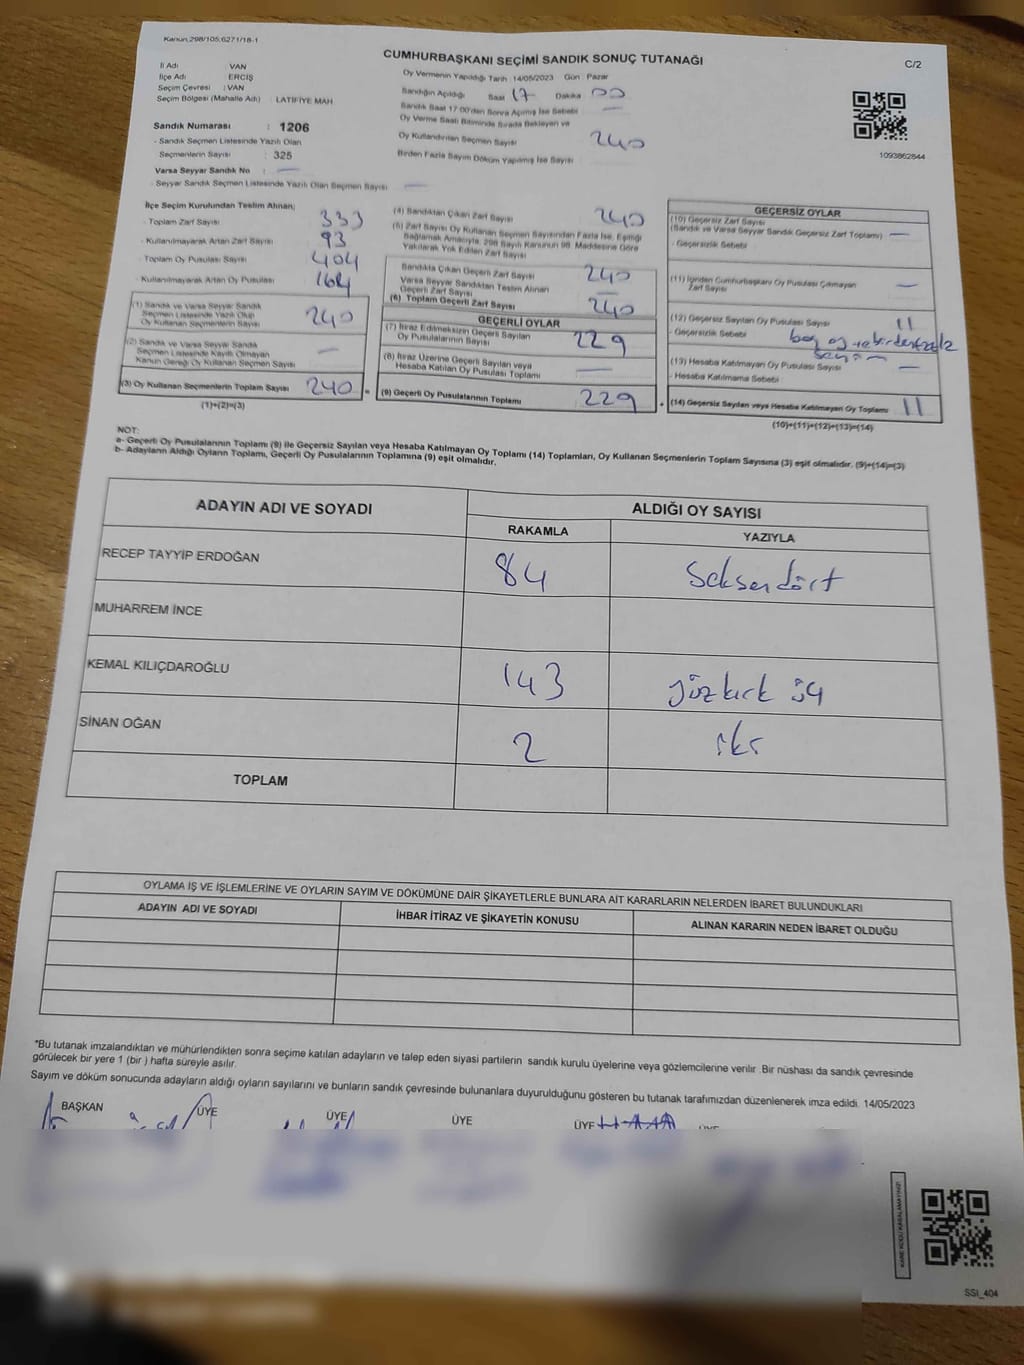 Kanun.298/105;6271/18-1
CUMHURBAŞKANI SEÇİMİ SANDIK SONUÇ TUTANAĞI
C/2
İl Adı : VAN
İlçe Adı : ERCİŞ
Seçim Çevresi : VAN
Seçim Bölgesi (Mahalle Adı) : LATİFİYE MAH
Sandık Numarası : 1206
- Sandık Seçmen Listesinde Yazılı Olan
Seçmenlerin Sayısı : 325
Varsa Seyyar Sandık No : —
- Seyyar Sandık Seçmen Listesinde Yazılı Olan Seçmen Sayısı —
Oy Vermenin Yapıldığı Tarih : 14/05/2023 Gün : Pazar
Sandığın Açıldığı Saat 17 Dakika 00
Sandık Saat 17:00'den Sonra Açılmış İse Sebebi —
Oy Verme Saati Bitiminde Sırada Bekleyen ve
Oy Kullandırılan Seçmen Sayısı 240
Birden Fazla Sayım Döküm Yapılmış İse Sayısı
1093862844
İlçe Seçim Kurulundan Teslim Alınan;
- Toplam Zarf Sayısı 333
- Kullanılmayarak Artan Zarf Sayısı 93
- Toplam Oy Pusulası Sayısı 404
- Kullanılmayarak Artan Oy Pusulası 164
(1) Sandık ve Varsa Seyyar Sandık
Seçmen Listesinde Yazılı Olup
Oy Kullanan Seçmenlerin Sayısı 240
(2) Sandık ve Varsa Seyyar Sandık
Seçmen Listesinde Kayıtlı Olmayan
Kanun Gereği Oy Kullanan Seçmen Sayısı —
(3) Oy Kullanan Seçmenlerin Toplam Sayısı 240
(1)+(2)=(3)
(4) Sandıktan Çıkan Zarf Sayısı 240
(5) Zarf Sayısı Oy Kullanan Seçmen Sayısından Fazla İse, Eşitliği
Sağlamak Amacıyla, 298 Sayılı Kanunun 98. Maddesine Göre
Yakılarak Yok Edilen Zarf Sayısı
Sandıkta Çıkan Geçerli Zarf Sayısı 240
Varsa Seyyar Sandıktan Teslim Alınan
Geçerli Zarf Sayısı —
(6) Toplam Geçerli Zarf Sayısı 240
GEÇERLİ OYLAR
(7) İtiraz Edilmeksizin Geçerli Sayılan
Oy Pusulasının Sayısı 229
(8) İtiraz Üzerine Geçerli Sayılan veya
Hesaba Katılan Oy Pusulası Toplamı —
(9) Geçerli Oy Pusulalarının Toplamı 229
GEÇERSİZ OYLAR
(10) Geçersiz Zarf Sayısı
(Sandık ve Varsa Seyyar Sandık Geçersiz Zarf Toplamı) —
- Geçersizlik Sebebi
(11) İçinden Cumhurbaşkanı Oy Pusulası Çıkmayan
Zarf Sayısı —
(12) Geçersiz Sayılan Oy Pusulası Sayısı 11
- Geçersizlik Sebebi boş oy ve birden fazla
seçim
(13) Hesaba Katılmayan Oy Pusulası Sayısı —
- Hesaba Katılmama Sebebi
(14) Geçersiz Sayılan veya Hesaba Katılmayan Oy Toplamı 11
(10)+(11)+(12)+(13)=(14)
NOT:
a- Geçerli Oy Pusulalarının Toplamı (9) ile Geçersiz Sayılan veya Hesaba Katılmayan Oy Toplamı (14) Toplamları, Oy Kullanan Seçmenlerin Toplam Sayısına (3) eşit olmalıdır. (9)+(14)=(3)
b- Adayların Aldığı Oyların Toplamı, Geçerli Oy Pusulalarının Toplamına (9) eşit olmalıdır.
ADAYIN ADI VE SOYADI ALDIĞI OY SAYISI
RAKAMLA YAZIYLA
RECEP TAYYİP ERDOĞAN 84 Seksendört
MUHARREM İNCE
KEMAL KILIÇDAROĞLU 143 yüzkırk üç
SİNAN OĞAN 2 iki
TOPLAM
OYLAMA İŞ VE İŞLEMLERİNE VE OYLARIN SAYIM VE DÖKÜMÜNE DAİR ŞİKAYETLERLE BUNLARA AİT KARARLARIN NELERDEN İBARET BULUNDUKLARI
ADAYIN ADI VE SOYADI İHBAR İTİRAZ VE ŞİKAYETİN KONUSU ALINAN KARARIN NEDEN İBARET OLDUĞU
*Bu tutanak imzalandıktan ve mühürlendikten sonra seçime katılan adayların ve talep eden siyasi partilerin sandık kurulu üyelerine veya gözlemcilerine verilir .Bir nüshası da sandık çevresinde
görülecek bir yere 1 (bir ) hafta süreyle asılır.
Sayım ve döküm sonucunda adayların aldığı oyların sayılarını ve bunların sandık çevresinde bulunanlara duyurulduğunu gösteren bu tutanak tarafımızdan düzenlenerek imza edildi. 14/05/2023
BAŞKAN ÜYE ÜYE ÜYE ÜYE
KARE KODU KARALAMAYINIZ!
SSI_404